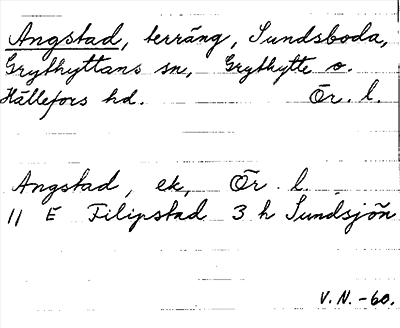 Angstad, terräng, Sundsboda,
Grythyttans sn, Grythytte o.
Hällefors hd. Ör. l.
Angstad, ek, Ör. l.
11 E Filipstad 3 h Sundsjön
V. N. -60.